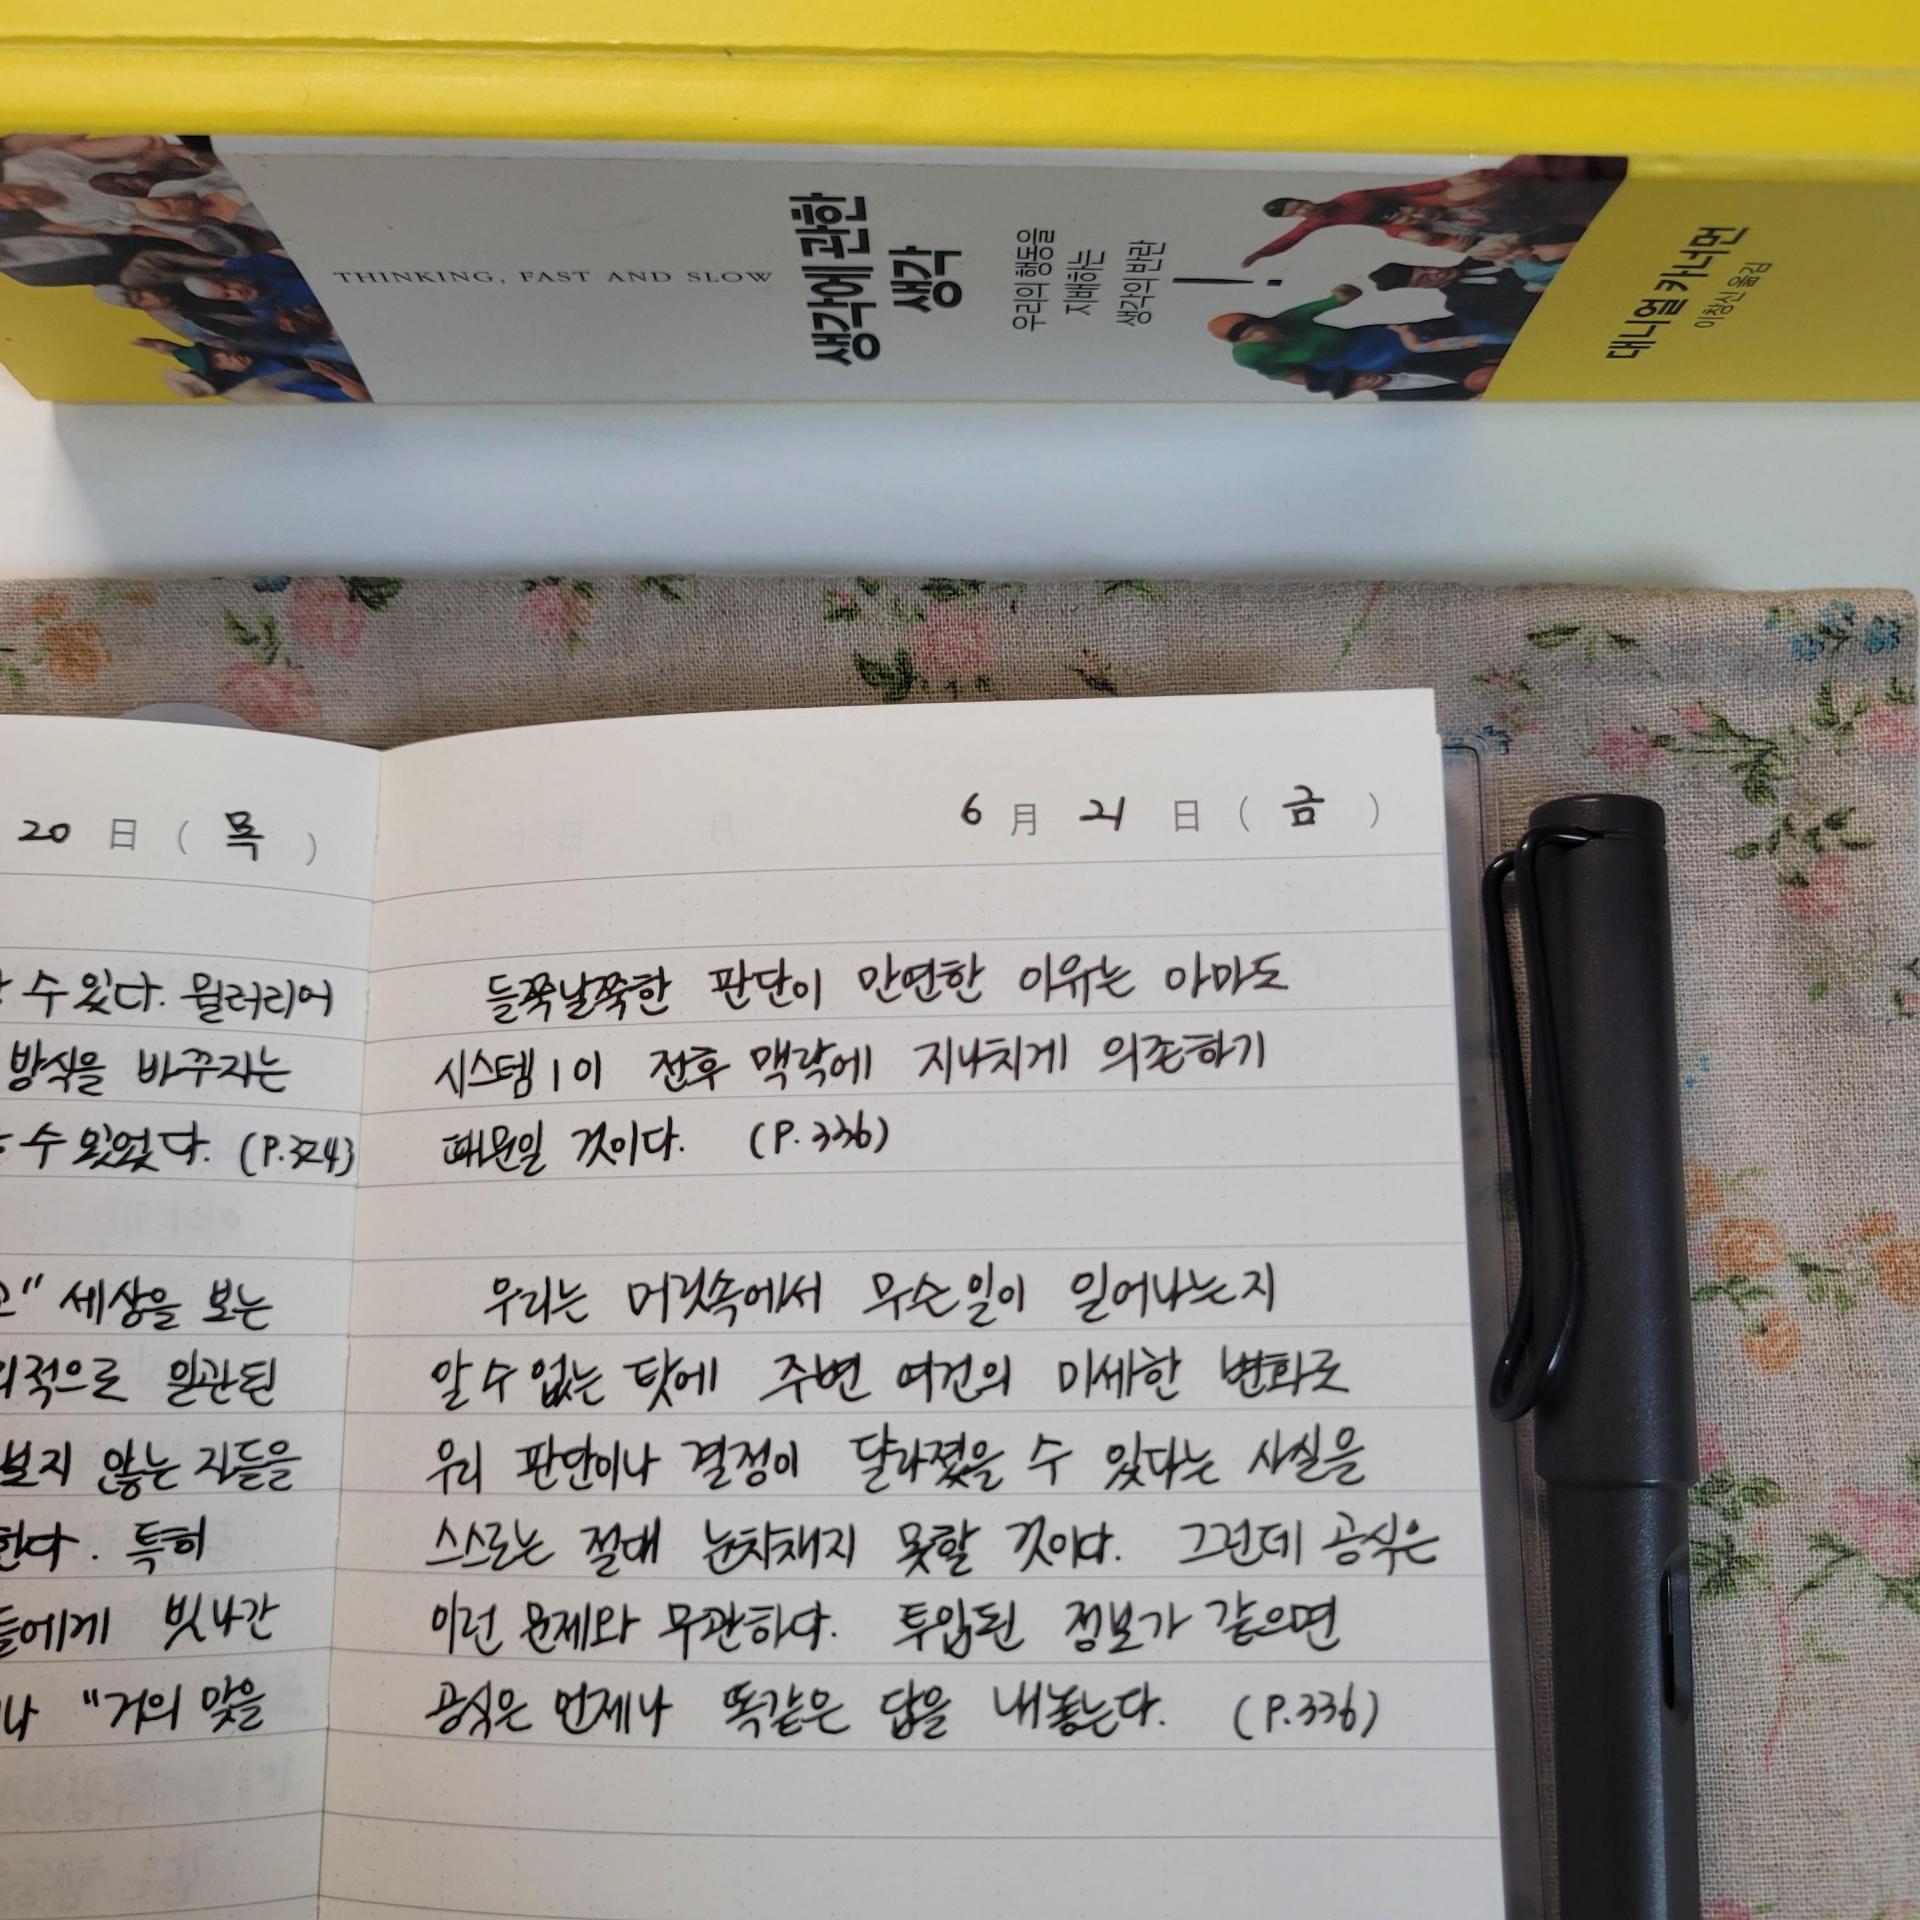 THINKING, FAST AND SLOW
생각에 관한
생각
우리의 행동을
지배하는
생각의 반란
!
대니얼 카너먼
이창신 옮김
20 日 ( 목 )
수 있다. 윌러리어
방식을 바꾸지는
수 있었다. (P.324)
" 세상을 보는
적으로 일관된
보지 않는 자들을
한다. 특히
들에게 빗나간
"거의 맞을
6 月 21 日 ( 금 )
들쭉날쭉한 판단이 만연한 이유는 아마도
시스템 1이 전후 맥락에 지나치게 의존하기
때문일 것이다. (P.336)
우리는 머릿속에서 무슨 일이 일어나는지
알 수 없는 탓에 주변 여건의 미세한 변화로
우리 판단이나 결정이 달라졌을 수 있다는 사실을
스스로는 절대 눈치채지 못할 것이다. 그런데 공식은
이런 문제와 무관하다. 투입된 정보가 같으면
공식은 언제나 똑같은 답을 내놓는다. (P.336)